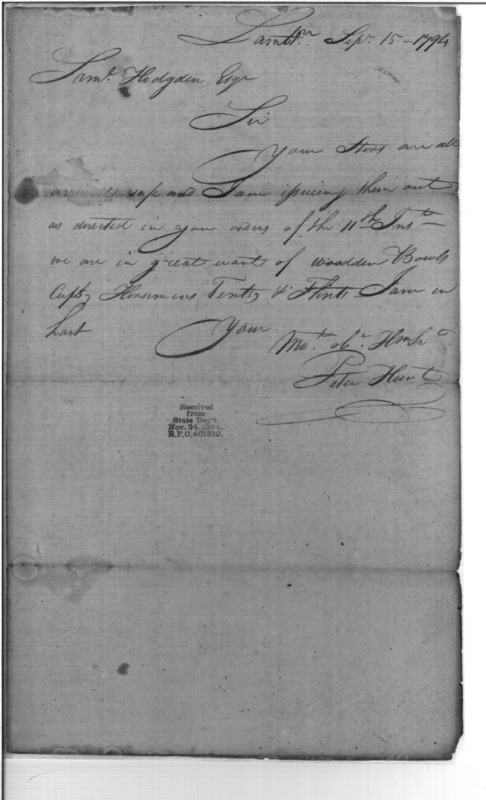 Lambtn. Sepr. 15 - 1794
Saml. Hodgden Esqr
Sir
Your Stors are all
arrivd safe and I am issueing them out
as directed in your orders of the 11th Instt
we are in great want of Woodden Bowls
Cups, Horsemens Tents, & Flints I am in
hast Your
Mot. obt. Hm Sr
Peter Hunt
Received
from
State Dep't.
Nov. 24, 1894.
R.P.O. 401810.